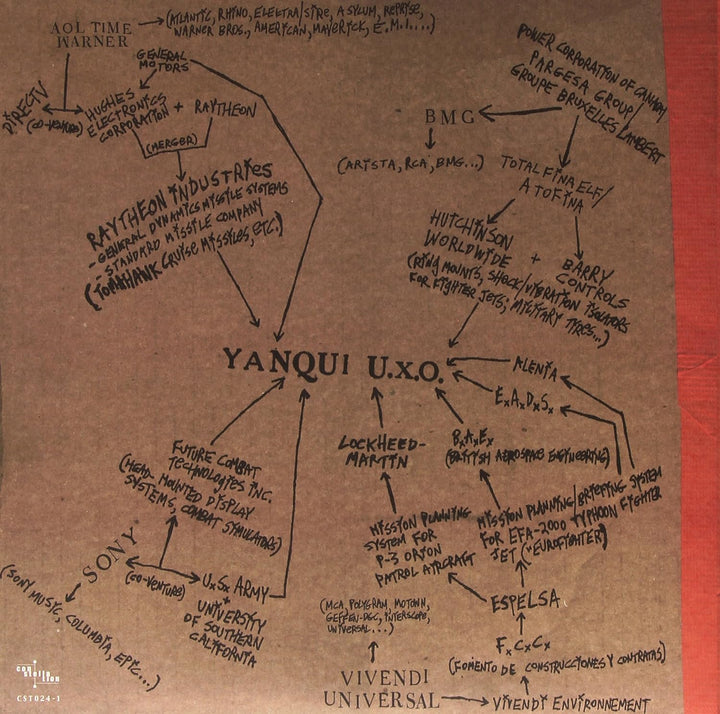 AOL TIME
WARNER
(ATLANTIC, RHINO, ELEKTRA/SIRE, ASYLUM, REPRISE,
WARNER BROS., AMERICAN, MAVERICK, E.M.I....)
GENERAL
MOTORS
DIRECTV
(CO-VENTURE)
HUGHES
ELECTRONICS
CORPORATION
+ RAYTHEON
(MERGER)
RAYTHEON INDUSTRIES
-GENERAL DYNAMICS MISSILE SYSTEMS
-STANDARD MISSILE COMPANY
(TOMAHAWK CRUISE MISSILES, ETC.)
POWER CORPORATION OF CANADA/
PARGESA GROUP/
GROUPE BRUXELLES LAMBERT
BMG
(ARISTA, RCA, BMG...)
TOTAL FINA ELF/
ATOFINA
HUTCHINSON
WORLDWIDE
+ BARRY
CONTROLS
(RING MOUNTS, SHOCK/VIBRATION ISOLATORS
FOR FIGHTER JETS; MILITARY TYRES...)
YANQUI U.X.O.
ALENIA
E.A.D.S.
LOCKHEED-
MARTIN
B.A.E.
(BRITISH AEROSPACE ENGINEERING)
FUTURE COMBAT
TECHNOLOGIES INC.
(HEAD-MOUNTED DISPLAY
SYSTEMS, COMBAT SIMULATORS)
MISSION PLANNING
SYSTEM FOR
P-3 ORION
PATROL AIRCRAFT
MISSION PLANNING/BRIEFING SYSTEM
FOR EFA-2000 TYPHOON FIGHTER
JET ("EUROFIGHTER")
SONY
(SONY MUSIC, COLUMBIA, EPIC...)
(CO-VENTURE)
U.S. ARMY
+
UNIVERSITY
OF SOUTHERN
CALIFORNIA
ESPELSA
F.C.C.
(FOMENTO DE CONSTRUCCIONES Y CONTRATAS)
(MCA, POLYGRAM, MOTOWN,
GEFFEN-DGC, INTERSCOPE,
UNIVERSAL...)
VIVENDI
UNIVERSAL
VIVENDI ENVIRONNEMENT
constellation
CST024-1